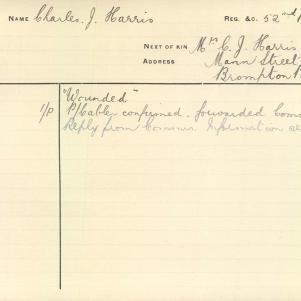 NAME Charles. J. Harris REG. &C. 52nd
NEXT OF KIN Mrs C. J. Harris
ADDRESS Mann Street
Brompton
"Wounded"
1/P P/Cable confirmed. forwarded
Reply from Commrs. Information